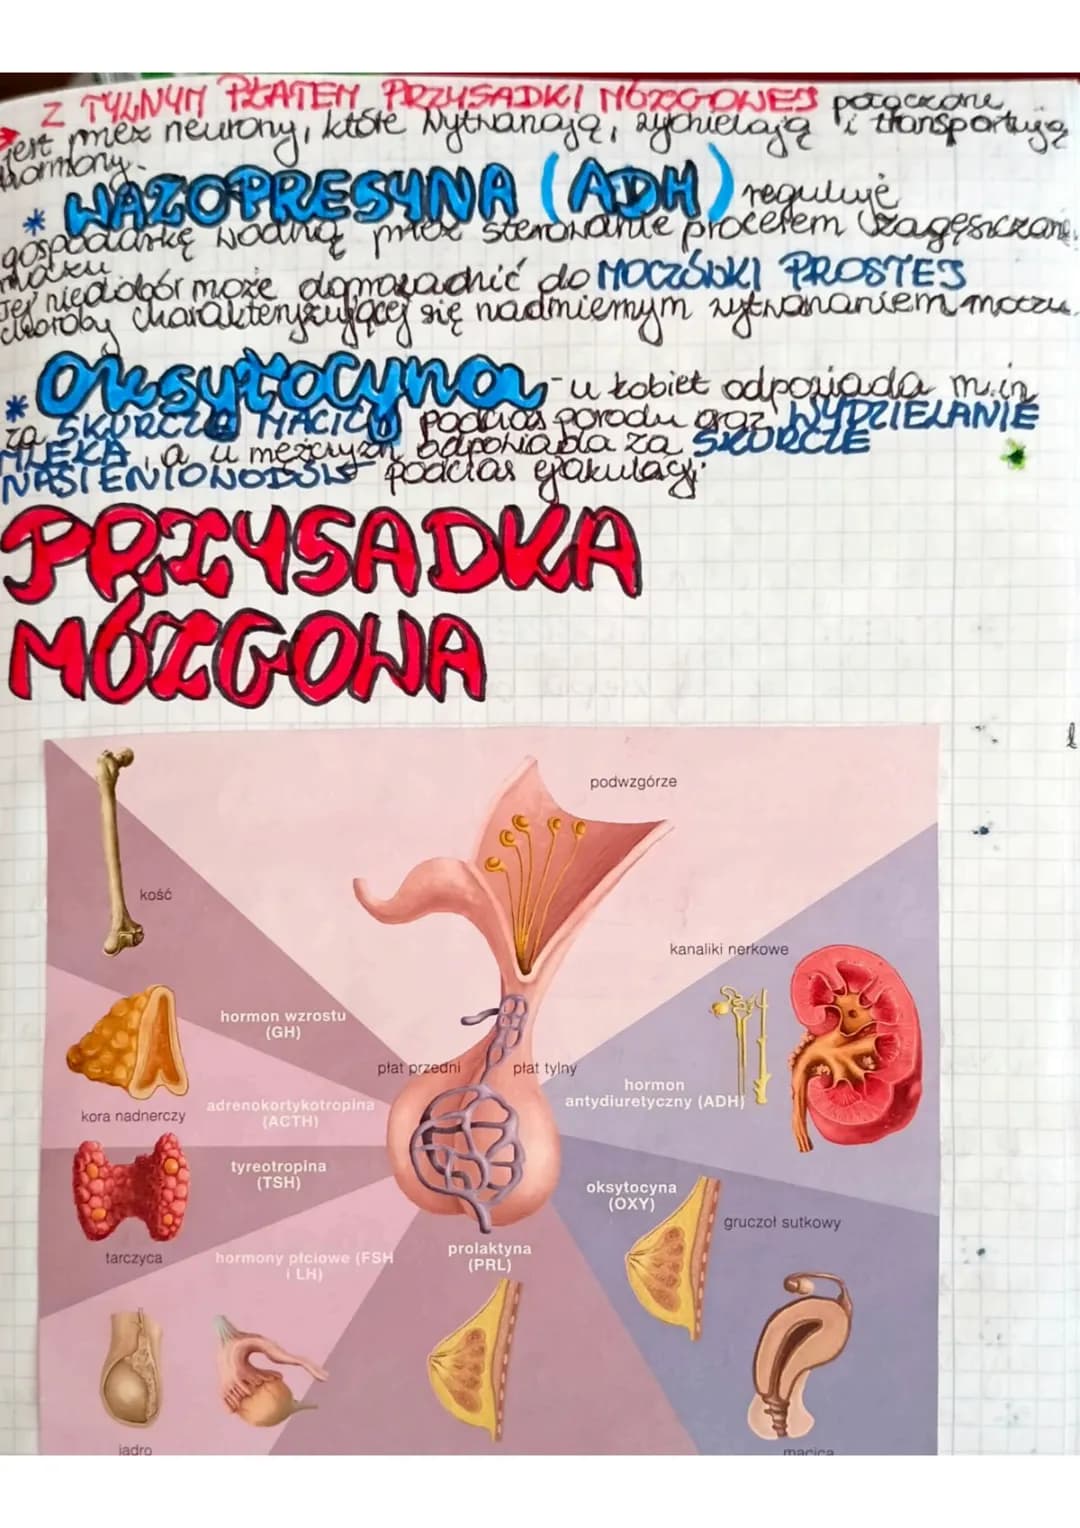 Z TYLNYM PŁATEM PRZYSADKI MÓZGOWEJ połączone
jest przez neurony, które wytwarzają, wydzielają i transportują
hormony.
* WAZOPRESYNA (ADH) reguluje
gospodarkę wodną przez sterowanie procesem zagęszczania
moczu
Jej niedobór może doprowadzić do MOCZÓWKI PROSTEJ
choroby charakteryzującej się nadmiernym wytwarzaniem moczu.
* Oksytocyna - u kobiet odpowiada m.in
za SKURCZE MACICY podczas porodu oraz WYDZIELANIE
MLEKA, a u mężczyzn odpowiada za SKURCZE
NASIENIOWODÓW podczas ejakulacji
PRZYSADKA
MÓZGOWA
podwzgórze
kość
kanaliki nerkowe
hormon wzrostu
(GH)
płat przedni
płat tylny
hormon
antydiuretyczny (ADH)
kora nadnerczy
adrenokortykotropina
(ACTH)
tyreotropina
(TSH)
oksytocyna
(OXY)
gruczoł sutkowy
tarczyca
hormony płciowe (FSH
i LH)
prolaktyna
(PRL)
jądro
macica